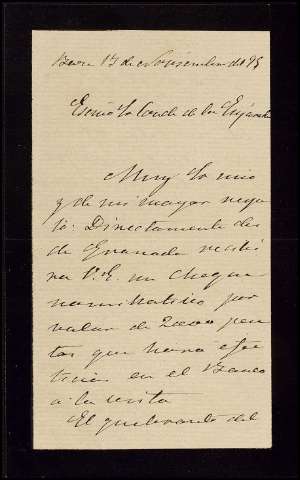 Baza 17 de Noviembre de 95
Exmo Sr Conde de las Infantas
Muy Sr mio
y de mi mayor respe
to: Directamente des
de Granada recibi
ra V.E. un cheque
nominativo por
valor de 2000 pese
tas que hara efec
tivas en el Banco
a la vista
El quebranto del